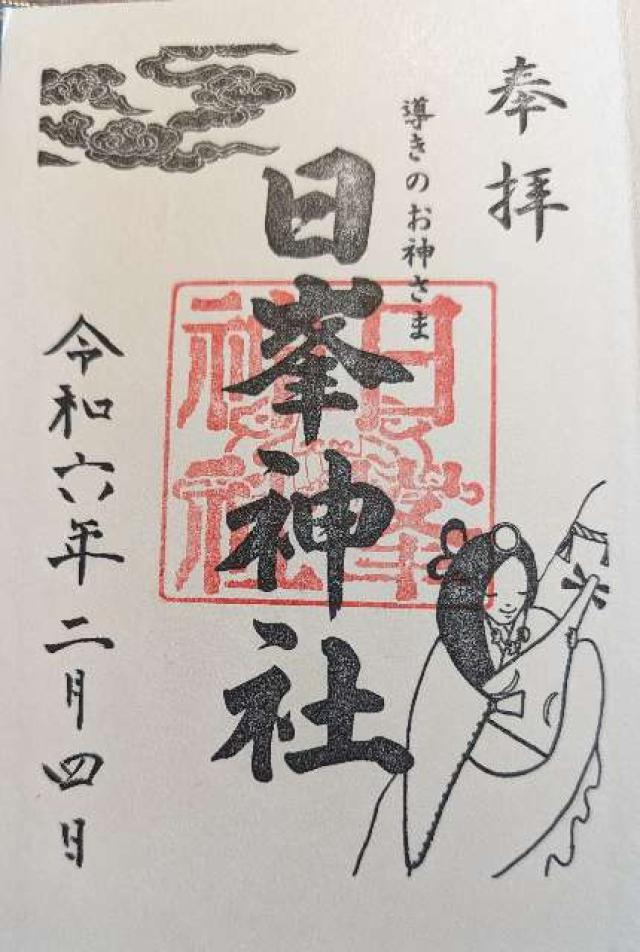 奉拝
導きのお神さま
日峯神社
日峯神社
令和六年二月四日